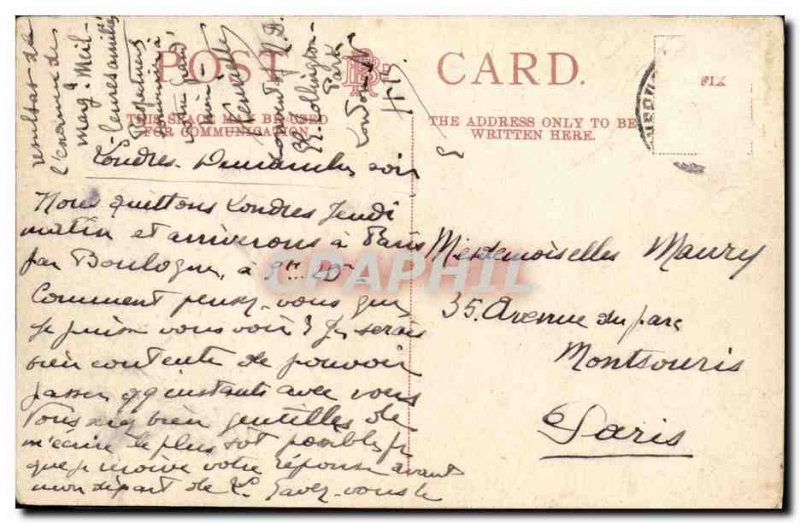 POST CARD.
THIS SPACE MAY BE USED
FOR COMMUNICATION.
THE ADDRESS ONLY TO BE
WRITTEN HERE.
Londres. Dimanche soir
Nous quittons Londres Jeudi
matin et arriverons à Paris
par Boulogne, à 9h 20
Comment pensez-vous que
je puisse vous voir? Je serais
bien contente de pouvoir
passer qq instants avec vous
Vous seriez bien gentilles de
m'écrire le plus tôt possible, pr
que je trouve votre réponse avant
mon départ de L. Savez-vous le
résultat de
l'examen de
Marg. Meil-
leures amitiés
London N.
Mesdemoiselles Maury
35. Avenue du parc
Montsouris
Paris
CPAPHIL
FIX